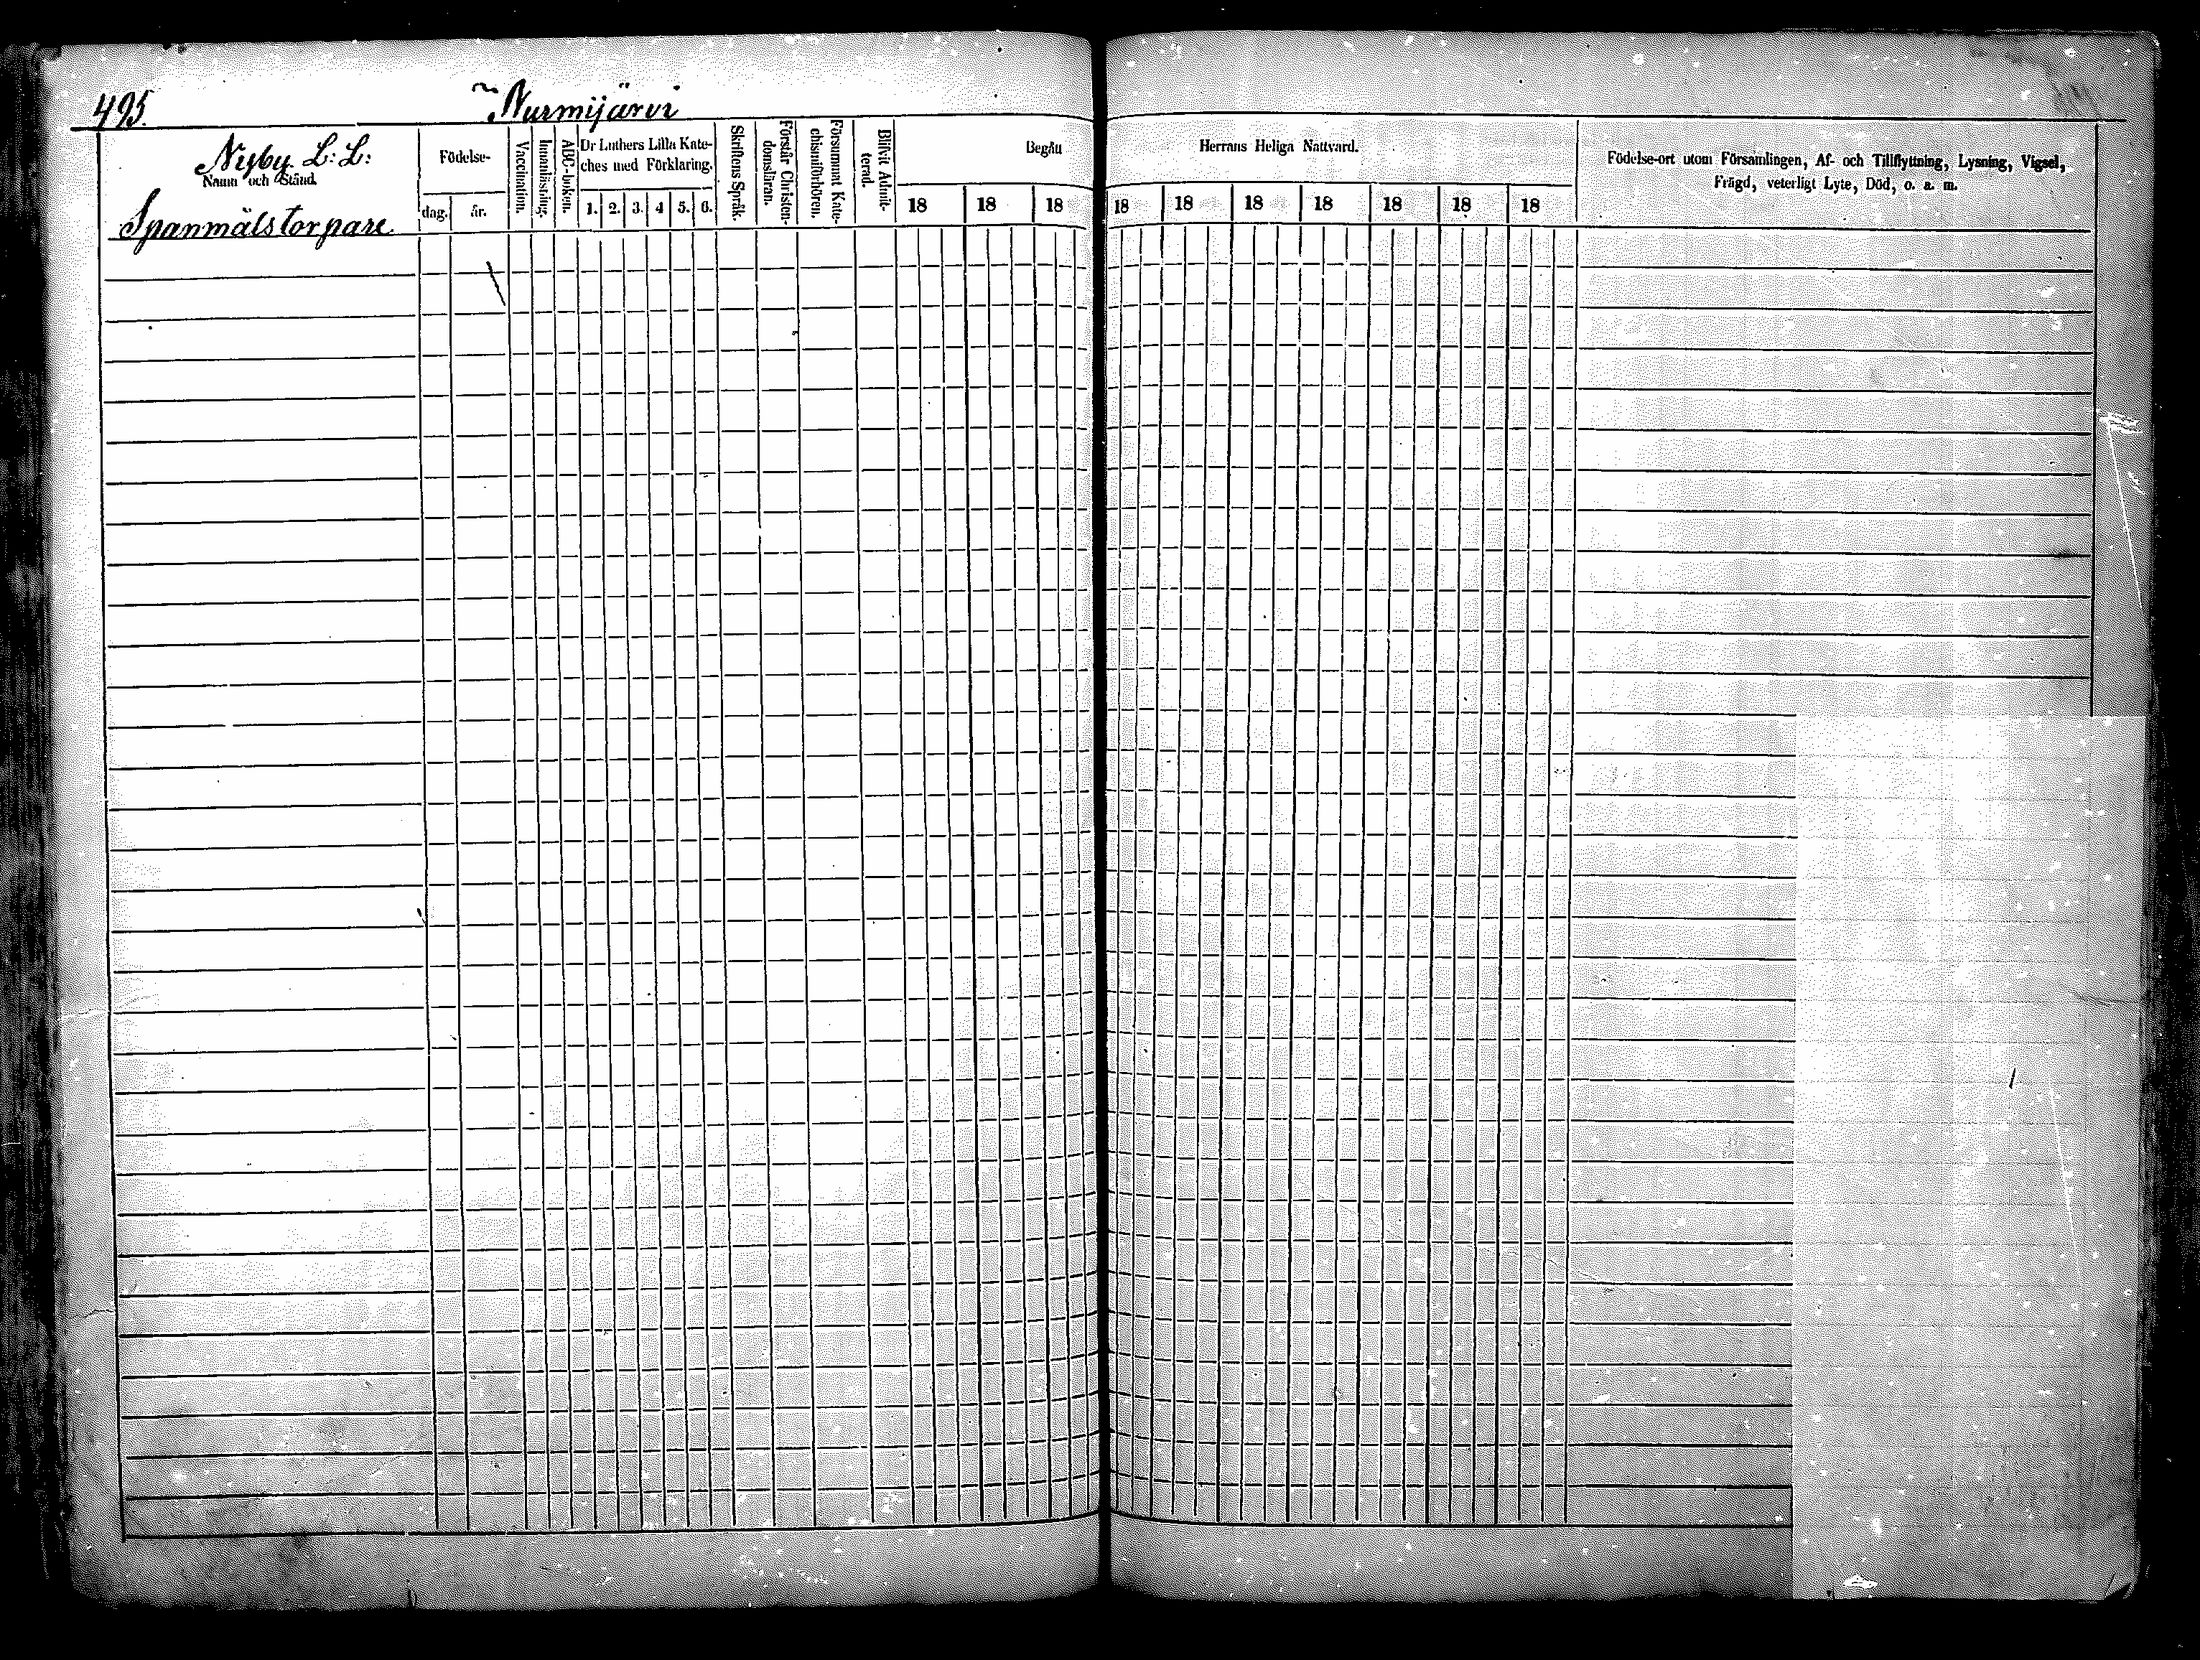 495.
Nurmijärvi
Nyby L: L:
Namn och Stånd.
Spanmålstorpare
Födelse-
dag.
år.
Vaccination.
Innanläsning.
ABC-boken.
Dr Luthers Lilla Kate-
ches med Förklaring.
1. 2. 3. 4 5. 6.
Skriftens Språk.
Förstår Christen-
domsläran.
Försummat Kate-
chismiförhören.
Blifvit Admit-
terad.
Begått
18 18 18
Herrans Heliga Nattvard.
18 18 18 18 18 18 18
Födelse-ort utom Församlingen, Af- och Tillflyttning, Lysning, Vigsel,
Frägd, veterligt Lyte, Död, o. s. m.